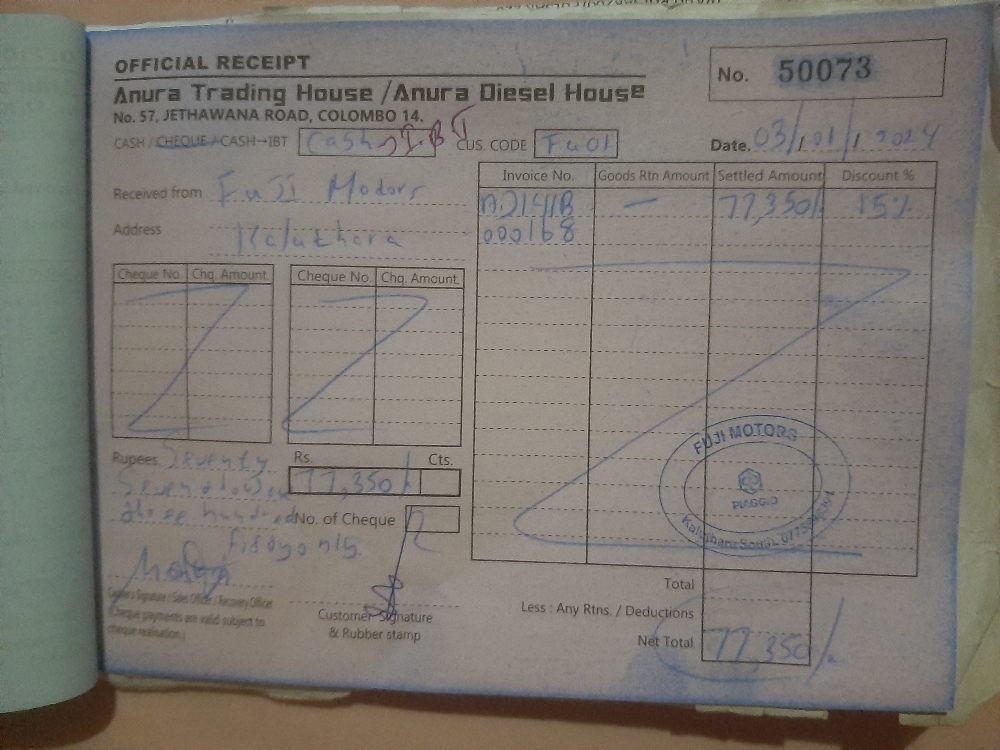 OFFICIAL RECEIPT
No. 50073
Anura Trading House / Anura Diesel House
No. 57, JETHAWANA ROAD, COLOMBO 14.
CASH / CHEQUE / CASH→IBT Cash → I.B.T CUS. CODE Fu01
Date. 03/01/2024
Received from Fuji Modors
Address Kaluthara
Invoice No. Goods Rtn Amount Settled Amount Discount %
77,350/. 15%
000168
Cheque No. Chq. Amount. Cheque No. Chq. Amount.
Rupees. Seventy
Rs. Cts.
77,350/.
hundred
No. of Cheque
only
FUJI MOTORS
PIAGGIO
Customer Signature
& Rubber stamp
(Cheque payments are valid subject to
cheque realisation.)
Total
Less : Any Rtns. / Deductions
Net Total 77,350/.